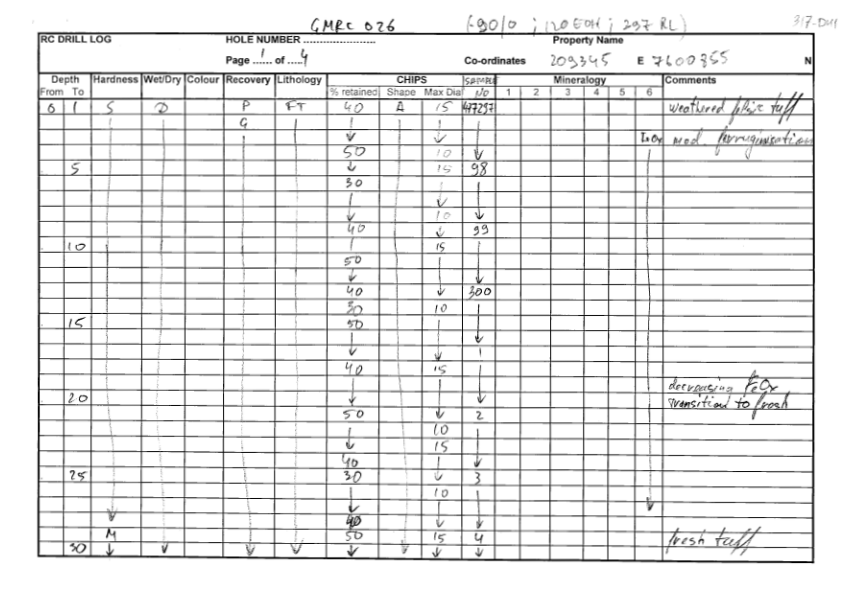 GMRC 026 (-90/0 ; 120 EOH ; 297 RL)
RC DRILL LOG HOLE NUMBER Property Name
Page 1 of 4 Co-ordinates 209345 E 7600355 N
Depth Hardness Wet/Dry Colour Recovery Lithology CHIPS SAMPLE Mineralogy Comments
From To % retained Shape Max Dia No 1 2 3 4 5 6
0 1 S D P FT 40 A 15 417297 weathered felsic tuff
G
FeOx mod. ferruginisation
50 10
5 15 98
30
10
40 99
10 15
50
40 300
30 10
15 50
40 15
decreasing FeOx
20 transition to fresh
50 2
10
15
40
25 30 3
10
40
M 50 15 4 fresh tuff
30